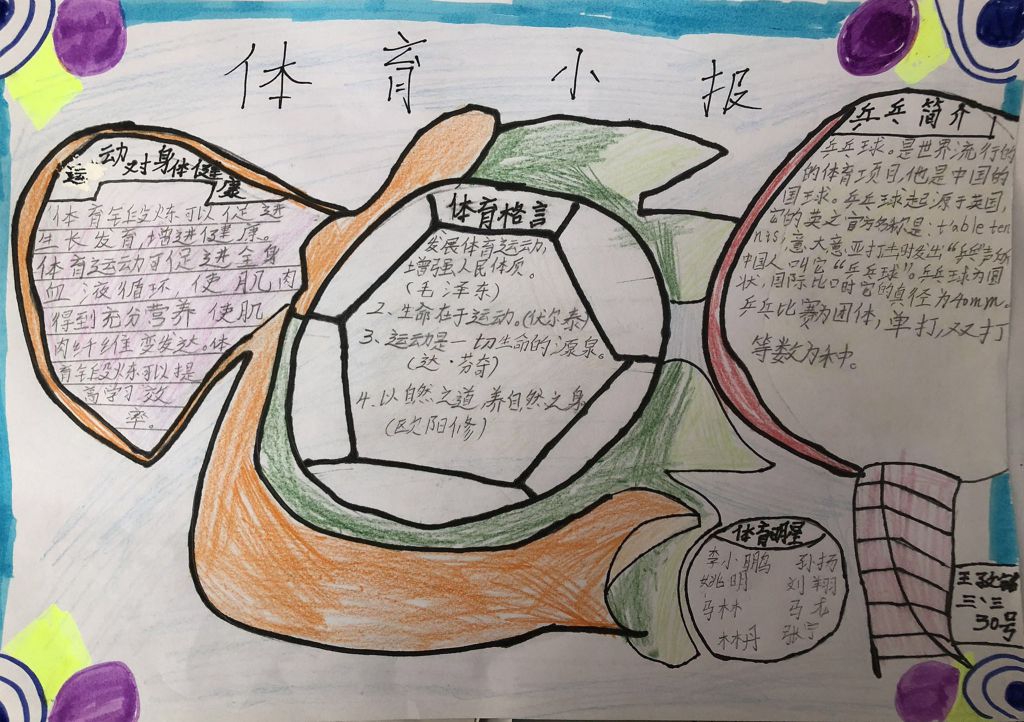 体育小报
运动对身体健康
体育锻炼可以促进
生长发育,增进健康。
体育运动可促进全身
血液循环使肌肉
得到充分营养使肌
肉纤维变发达。体
育锻炼可以提
高学习效
率。
体育格言
发展体育运动,
增强人民体质。
(毛泽东)
2、生命在于运动。(伏尔泰)
3、运动是一切生命的源泉。
(达·芬奇)
4、以自然之道,养自然之身
(欧阳修)
乒乓简介
乒乓球。是世界流行的
的体育项目,他是中国的
国球。乒乓球起源于英国,
它的英文官方名称是:table ten
nis,意大意亚打击时发出“乒乓声
中国人叫它“乒乓球”。乒乓球为圆
状,国际比时它的直径为40mm。
乒乓比赛为团体,单打,双打
等数为种。
体育明星
李小鹏 孙扬
姚明 刘翔
马林 马龙
林丹 张宁
王
三、三
30号